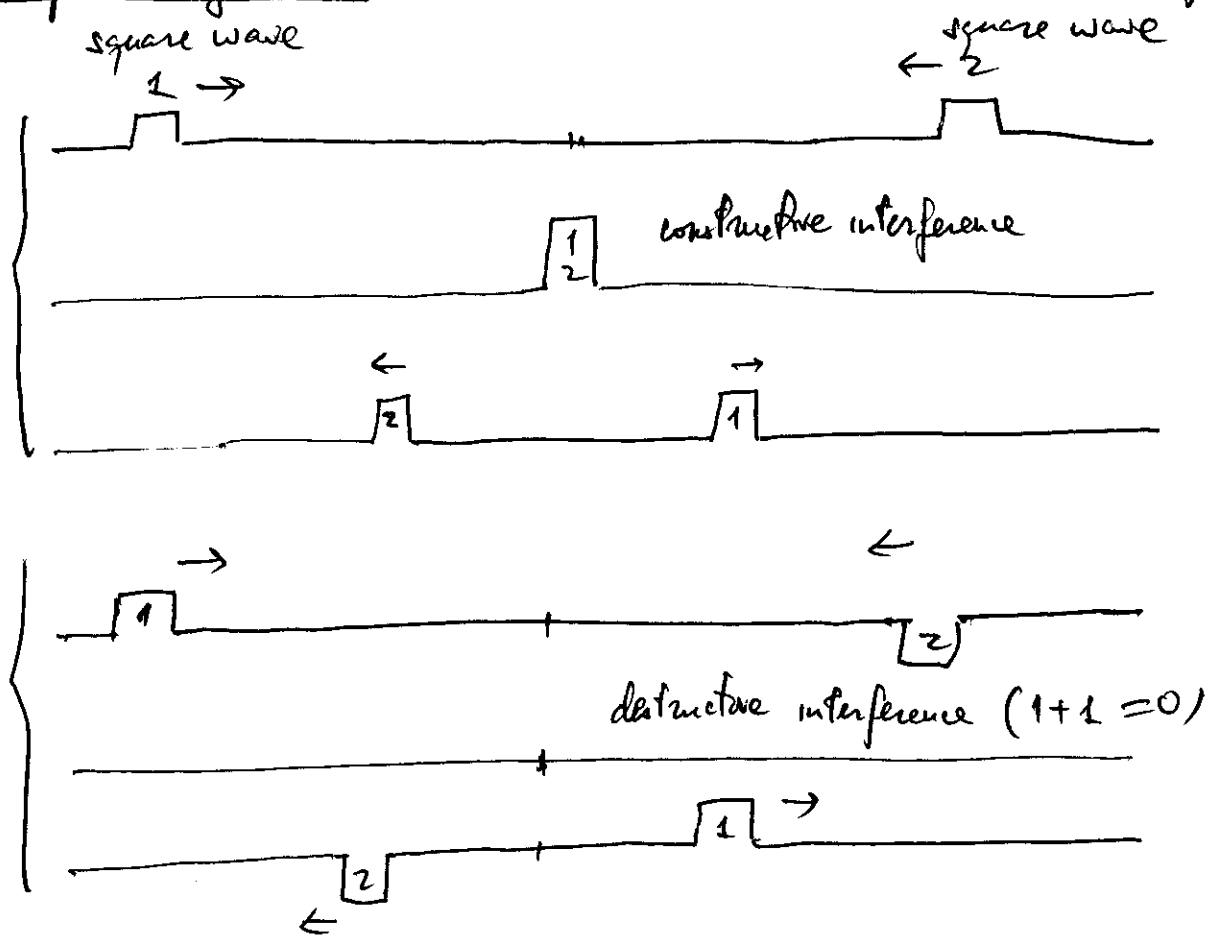 square wave square wave
1 → ← 2
constructive interference
1
2
← →
2 1
→ ←
1 2
destructive interference (1+1=0)
1 →
2
←